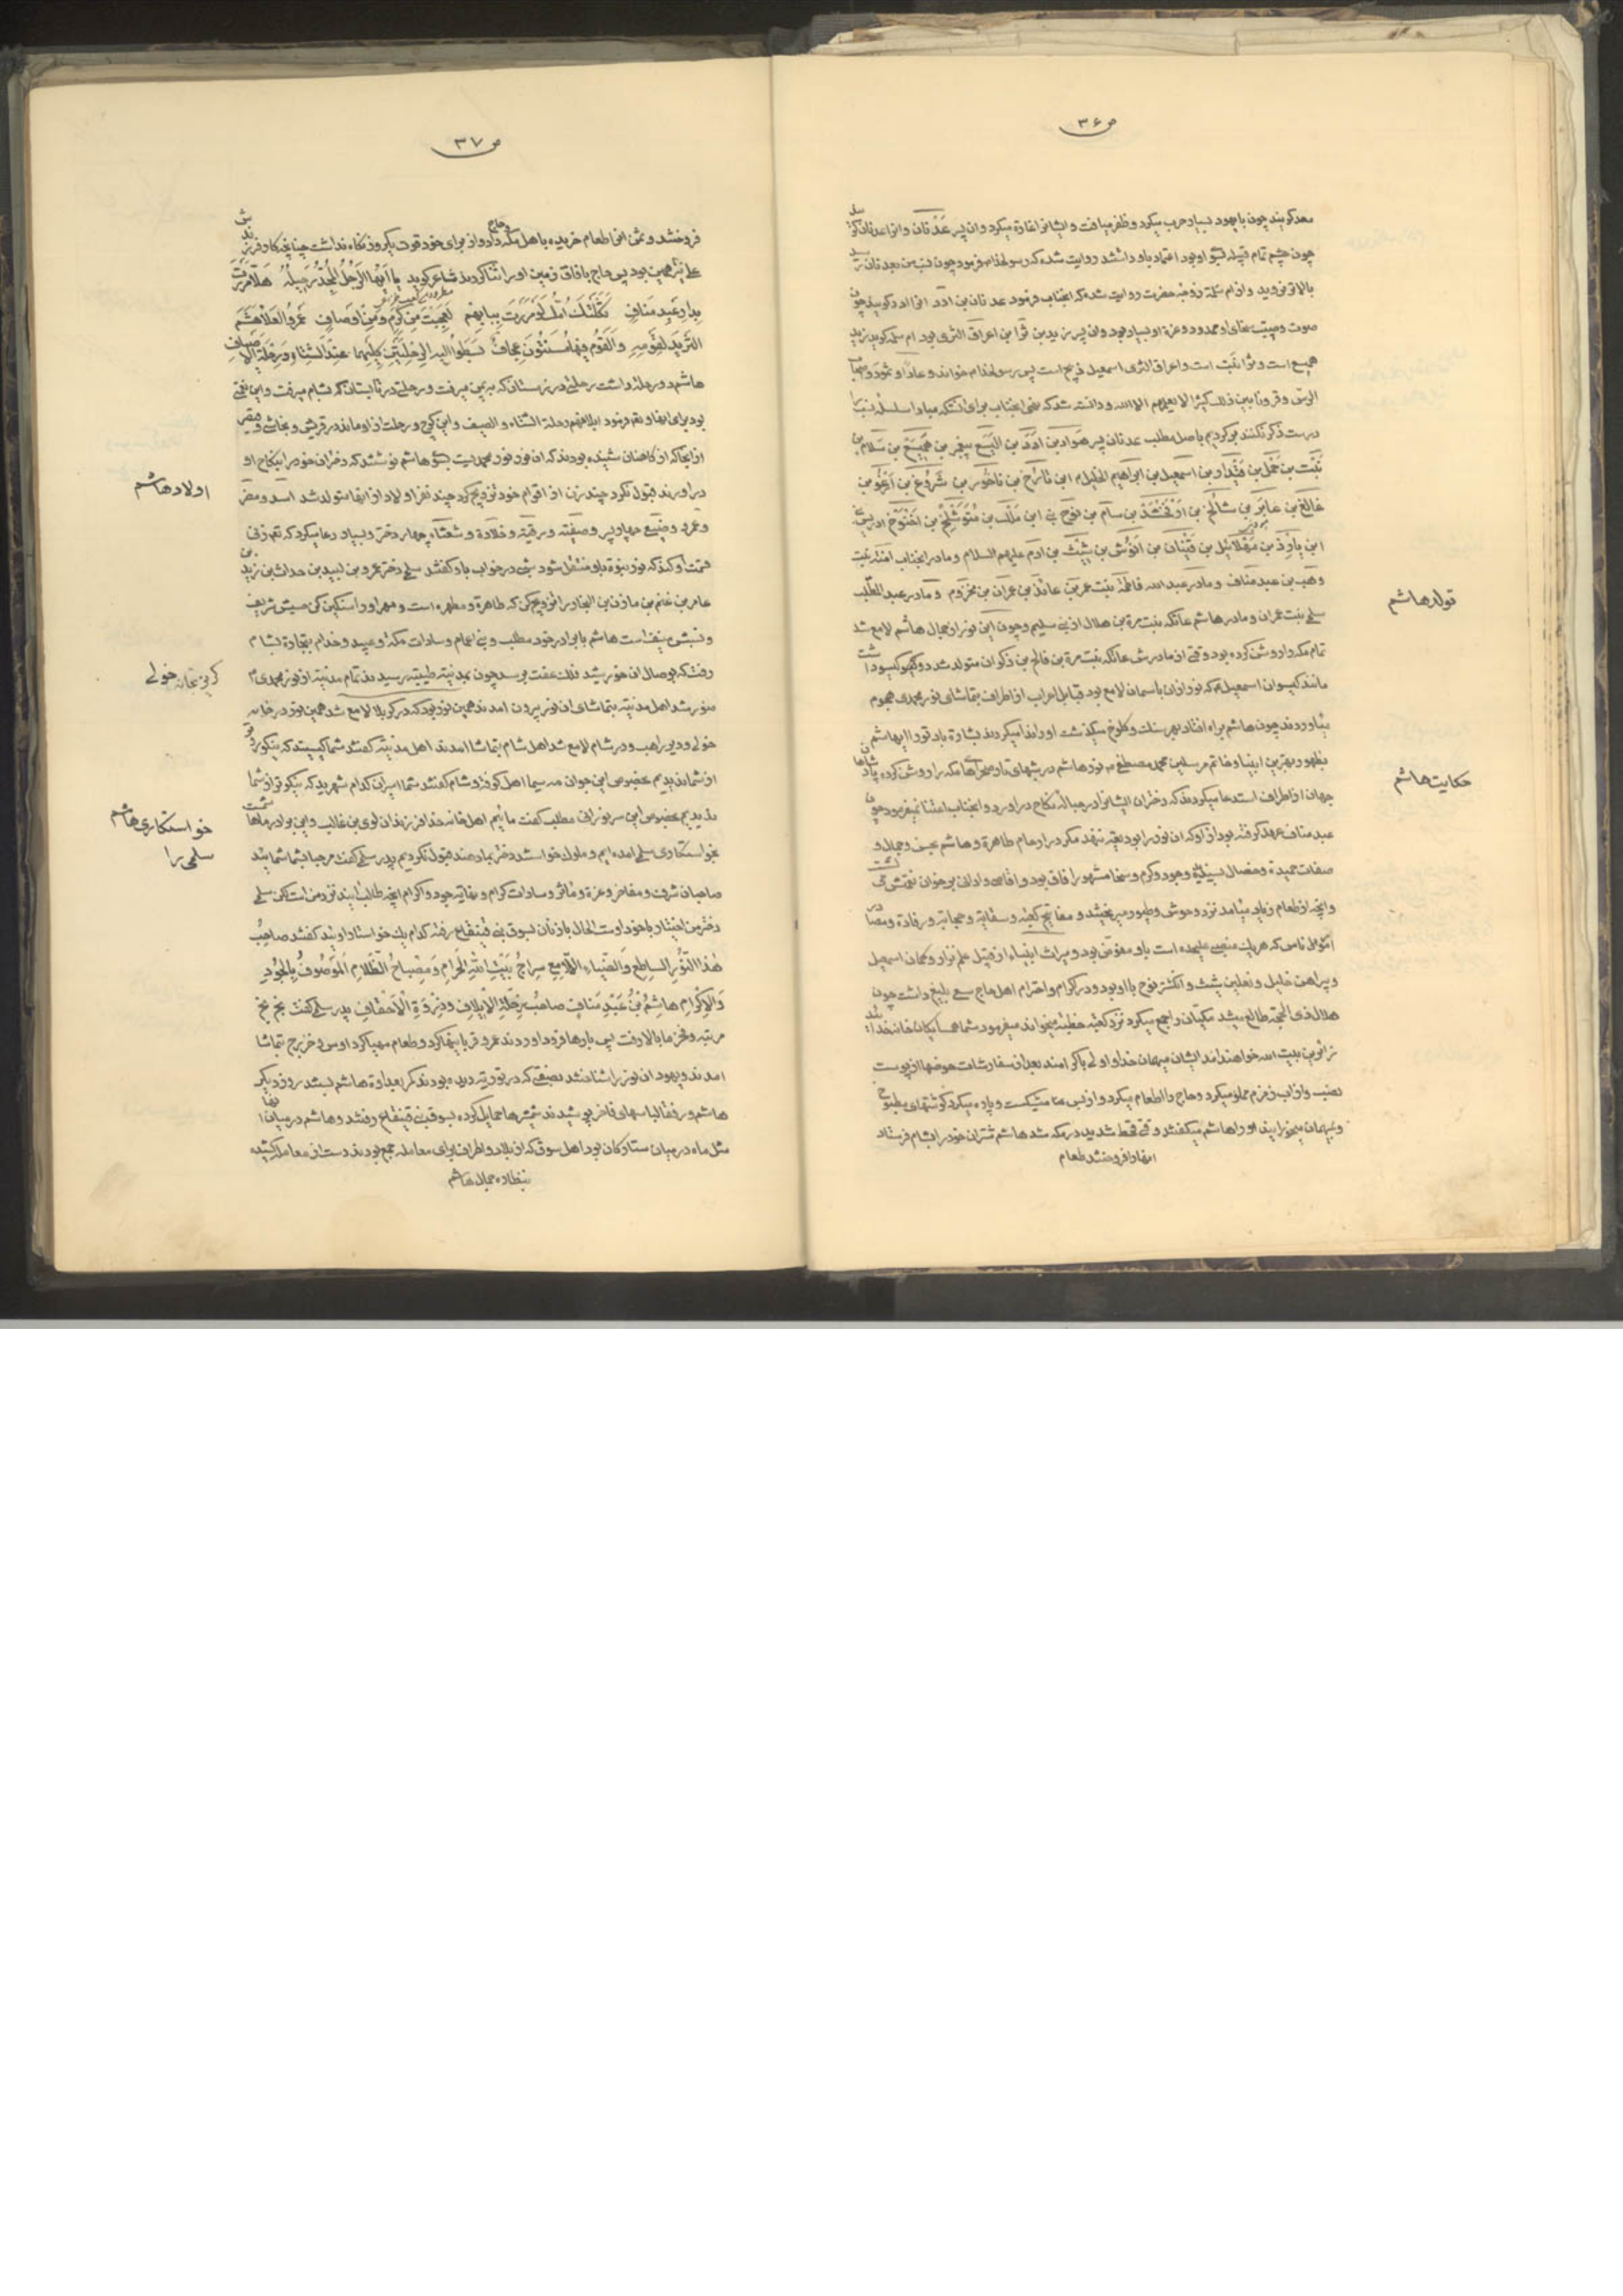 ص ۳۶
معد گویند چون با یهود بسیار حرب میکرد و ظفر مییافت و ایشانرا غارة میکرد و ان پسر عدنان و انرا عدنان
چون چشم تمام قبیله او بود اعتماد باو داشتند روایت شده که رسولخدا فرمود چون نسب من بعدنان رسد
بالاتر نروید و از ام سلمة زوجه حضرت روایت شده که انجناب فرمود عدنان بن ادد انرا ادد گویند چون
صوت و صیت او ممدود و عزة او بسیار بود و ان پسر زید بن ثرا بن اعراق الثری بود ام سلمه گوید زید
همیع است و ثرا نبت است و اعراق الثری اسمعیل ذبیح است پس رسولخدا خواند و عادا و ثمود و اصحاب
الرس و قرونا بین ذلک کثیرا لا یعلمهم الا الله و دانسته شد که نهی انجناب برای انستکه مبادا سلسله نسب را
درست ذکر نکنند برگردیم باصل مطلب عدنان پسر ادد بن الیسع پیغمبر بن همیسع بن سلامان بن
نبت بن حمل بن قیدار بن اسمعیل بن ابراهیم الخلیل ابن تارخ بن ناخور بن شروغ بن ارغو بن
فالغ بن عابر بن شالخ بن ارفخشد بن سام بن نوح نبی ابن ملک بن متوشلخ بن اخنوخ ادریس
ابن یارد بن مهلائیل بن قینان بن انوش بن شیث بن ادم علیهم السلام و مادر انجناب امنه بنت
وهب بن عبد مناف و مادر عبد الله فاطمة بنت عمر بن عائذ بن عمران بن مخزوم و مادر عبد المطلب
سلمی بنت عمران و مادر هاشم عاتکه بنت مرة بن هلال از بنی سلیم و چون این نور از جمال هاشم لامع شد
تمام مکه را روشن کرده بود وقتی از مادرش عاتکه بنت مرة بن فالح بن ذکوان متولد شد دو گیسو داشت
مانند گیسوان اسمعیل که نور ازان باسمان لامع بود قبایل اعراب از اطراف بتماشای نور محمدی هجوم
بیاوردند چون هاشم براه افتاد بهر سنگ و کلوخ میگذشت او را ندا میکردند بشارة باد تو را ای هاشم
بظهور بهترین انبیا و خاتم مرسلین محمد مصطفی نور هاشم در شبهای تار صحراهای مکه را روشن کرده پادشاهان
جهان از اطراف استدعا میکردند که دختران ایشانرا در حباله نکاح در اورد و انجناب اعتنا نمیفرمود چون
عبد مناف عهد گرفته بود از او که ان نور را ودیعه ننهد مگر در ارحام طاهرة و هاشم بحسن و جمال و
صفات حمیدة و خصال پسندیدة و جود و کرم و سخا مشهور افاق بود و اقاصی و ادانی بر خوان نعمتش
وانچه از طعام زیاد میامد نزد وحوش و طیور میریختند و مفاتیح کعبه و سقایة و حجابة و رفادة و
امور ناس که هر یک منصبی علیحده است باو مفوض بود و میراث انبیاء از قبیل علم نزار و کمان اسمعیل
و پیراهن خلیل و نعلین شیث و انگشتر نوح با او بود و در اکرام و احترام اهل حاج سعی بلیغ داشت چون
هلال ذی الحجة طالع میشد مکیان را جمع میکرد نزد کعبه خطبه میخواند میفرمود شما همسایگان خانه خدائید
زائرین بیت الله خواهند امد ایشان میهمان خدا و اولی باکرامند بعد از سفارشات حوضها از پوست
نصب و از اب زمزم مملو میکرد و حاج را اطعام میکرد و از بس میشکست و پاره میکرد گوشتهای
و بمهمان میخورانید او را هاشم میگفتند وقتی قحط شدید در مکه شد هاشم شتران خود را بشام فرستاد
انها را فروختند طعام
تولد هاشم
حکایت هاشم
ص ۳۷
فروختند و ثمن انرا طعام خریده باهل مکه و حاج داد و از برای خود قوت یکروز نگاه نداشت چنانچه کار فرزندش
علی نیز همین بود پس حاج بافاق زمین او را ثنا کردند شاعر گوید یا ایها الرجل المجد رحیله هلا مررت
بدار عبد مناف ثکلتک امک لو مررت ببابهم لعجبت من کرم و من اوصاف عمرو العلا هشم
الثرید لقومه والقوم فیها مسنتون عجاف بسطوا الیه الرحلتین کلیهما عند الشتاء و رحلة الاصیاف
هاشم دو رحله داشت رحلتی در زمستان که به یمن میرفت و رحلتی در تابستان که بشام میرفت و این نعمتی
بود برای انها و نعم فرمود ایلافهم رحلة الشتاء و الصیف و این کوچ و رحلت از او ماند در قریش و نجاشی و قیصر
از انجا که از کاهنان شنیده بودند که ان نور نور محمدیست بسوی هاشم نوشتند که دختران خود را بنکاح او
در اورند قبول نکرد چند زن از اقوام خود تزویج کرد چند نفر اولاد از انها متولد شد اسد و مضر
و عمرو و صیفی چهار پسر و صفیه و رقیة و خلادة و شعثاء چهار دختر و بسیار دعا میکرد که تعم رزقی
قسمت او کند که نور نبوة باو منتقل شود شبی در خواب باو گفتند سلمی دختر عمرو بن لبید بن حداث بن زید بن
عامر بن غنم بن مازن بن النجار را تزویج کن که طاهرة و مطهره است و مهر او را سنگین کن حسبش شریف
و نسبش منیف است هاشم با برادر خود مطلب و بنی اعمام و سادات مکه و عبید و خدام بتجارة بشام
رفت که بوصال ان خورشید فلک عفت برسد چون بمدینه طیبه رسیدند تمام مدینه از نور محمدی
منور شد اهل مدینه بتماشای ان نور بیرون امدند همین نور بود که در کربلا لامع شد همین نور در خانه
خولی و دیر راهب و در شام لامع شد اهل شام بتماشا امدند اهل مدینه گفتند شما کیستید که نیکوتر
از شما ندیدیم بخصوص این جوان مه سیما اهل کوفه و شام گفتند شما اسیران کدام شهرید که نیکوتر از شما
ندیدیم بخصوص این سر نورانی مطلب گفت مائیم اهل خانه خدا فرزندان لوی بن غالب و این برادر ما هاشمست
بخواستکاری سلمی امده ایم و ملوک خواستند دختر بما دهند قبول نکردیم پدر سلمی گفت مرحبا بشما شمائید
صاحبان شرف و مفاخر و عزة و ماثر و سادات کرام و جود و اکرام انچه طالبائید نزد من است لکن سلمی
دختر من اختیار با خود اوست الحال با زنان بسوق بنی قینقاع رفته کدام یک خواستار اوئید گفتند صاحب
هذا النور الساطع والضیاء اللامع سراج بیت الله الحرام و مصباح الظلام الموصوف بالجود
والاکرام هاشم بن عبد مناف صاحب رحلة الایلاف و ذروة الاحقاف پدر سلمی گفت بخ بخ
مرتبه و فخر ما بالا رفت پس بارها فرود اوردند عمرو قربانیها کرد و طعام مهیا کرد اوس و خزرج بتماشا
امدند و یهود ان نور را شناختند بصفتی که در توریة دیده بودند کمر بعداوة هاشم بستند روز دیگر
هاشم و رفقا لباسهای فاخر پوشیدند شمشیرها حمایل کرده بسوق بنی قینقاع رفتند و هاشم در میان انها
مثل ماه در میان ستارکان بود اهل سوق که از بلاد و اطراف برای معامله جمع بودند دست از معامله کشیده
بنظاره جمال هاشم
اولاد هاشم
گریز بخانه خولی
خواستکاری هاشم
سلمی را